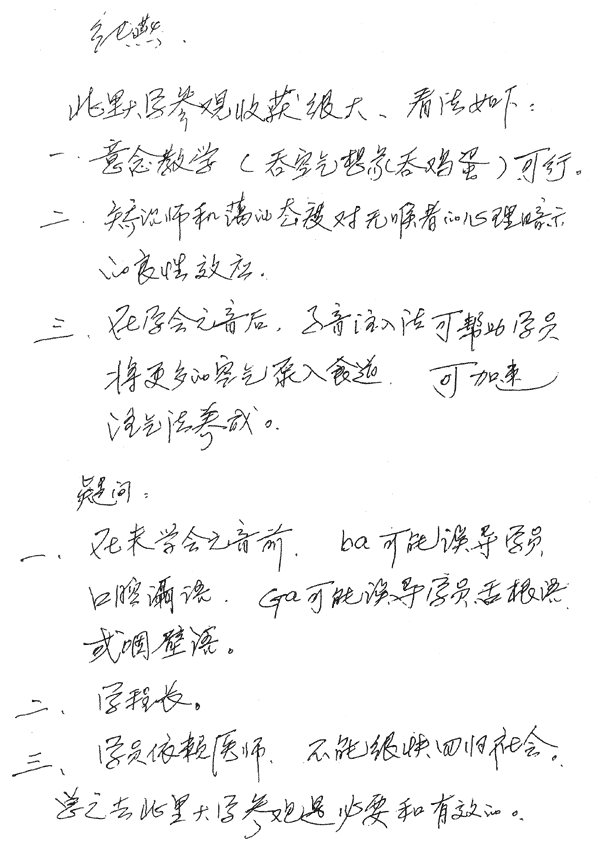 此里大学参观收获很大、看法如下：
一. 意念教学（吞空气想象吞鸡蛋）可行。
二. 矫治师和蔼的态度对无喉者的心理暗示
的良性效应.
三. 在学会元音后，子音注入法可帮助学员
将更多的空气泵入食道. 可加速
注气法养成。
疑问：
一. 在未学会元音前. ba可能误导学员
口腔语. Ga可能误导学员舌根语
或咽壁语。
二. 学程长。
三. 学员依赖医师. 不能很快回归社会。
总之去此里大学参观是必要和有效的。